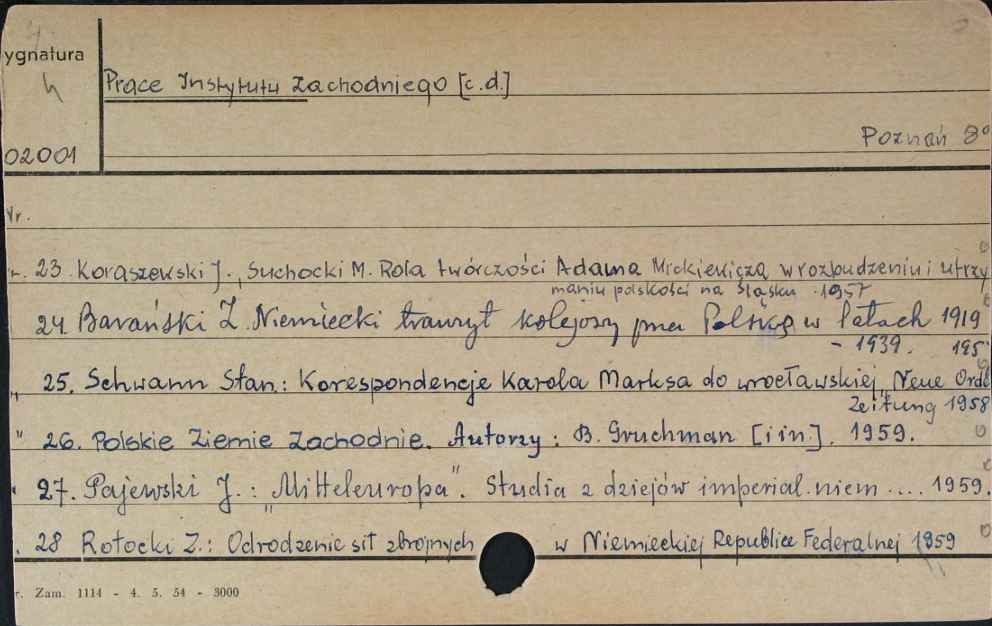 ygnatura
Prace Instytutu Zachodniego [c.d.]
Poznań 8°
02001
Nr.
23. Koraszewski J., Suchocki M. Rola twórczości Adama Mickiewicza w rozbudzeniu i utrzy
maniu polskości na Śląsku. 1957
24. Barański Z. Niemiecki tranzyt kolejowy przez Polskę w latach 1919
- 1939. 195
" 25. Schwann Stan.: Korespondencje Karola Marksa do wrocławskiej „Neue Ord
Zeitung 1958
" 26. Polskie Ziemie Zachodnie. Autorzy: B. Gruchman [i in.]. 1959.
27. Pajewski J.: „Mitteleuropa". Studia z dziejów imperial. niem .... 1959.
28 Rotocki Z.: Odrodzenie sił zbrojnych w Niemieckiej Republice Federalnej 1959
r. Zam. 1114 - 4. 5. 54 - 3000